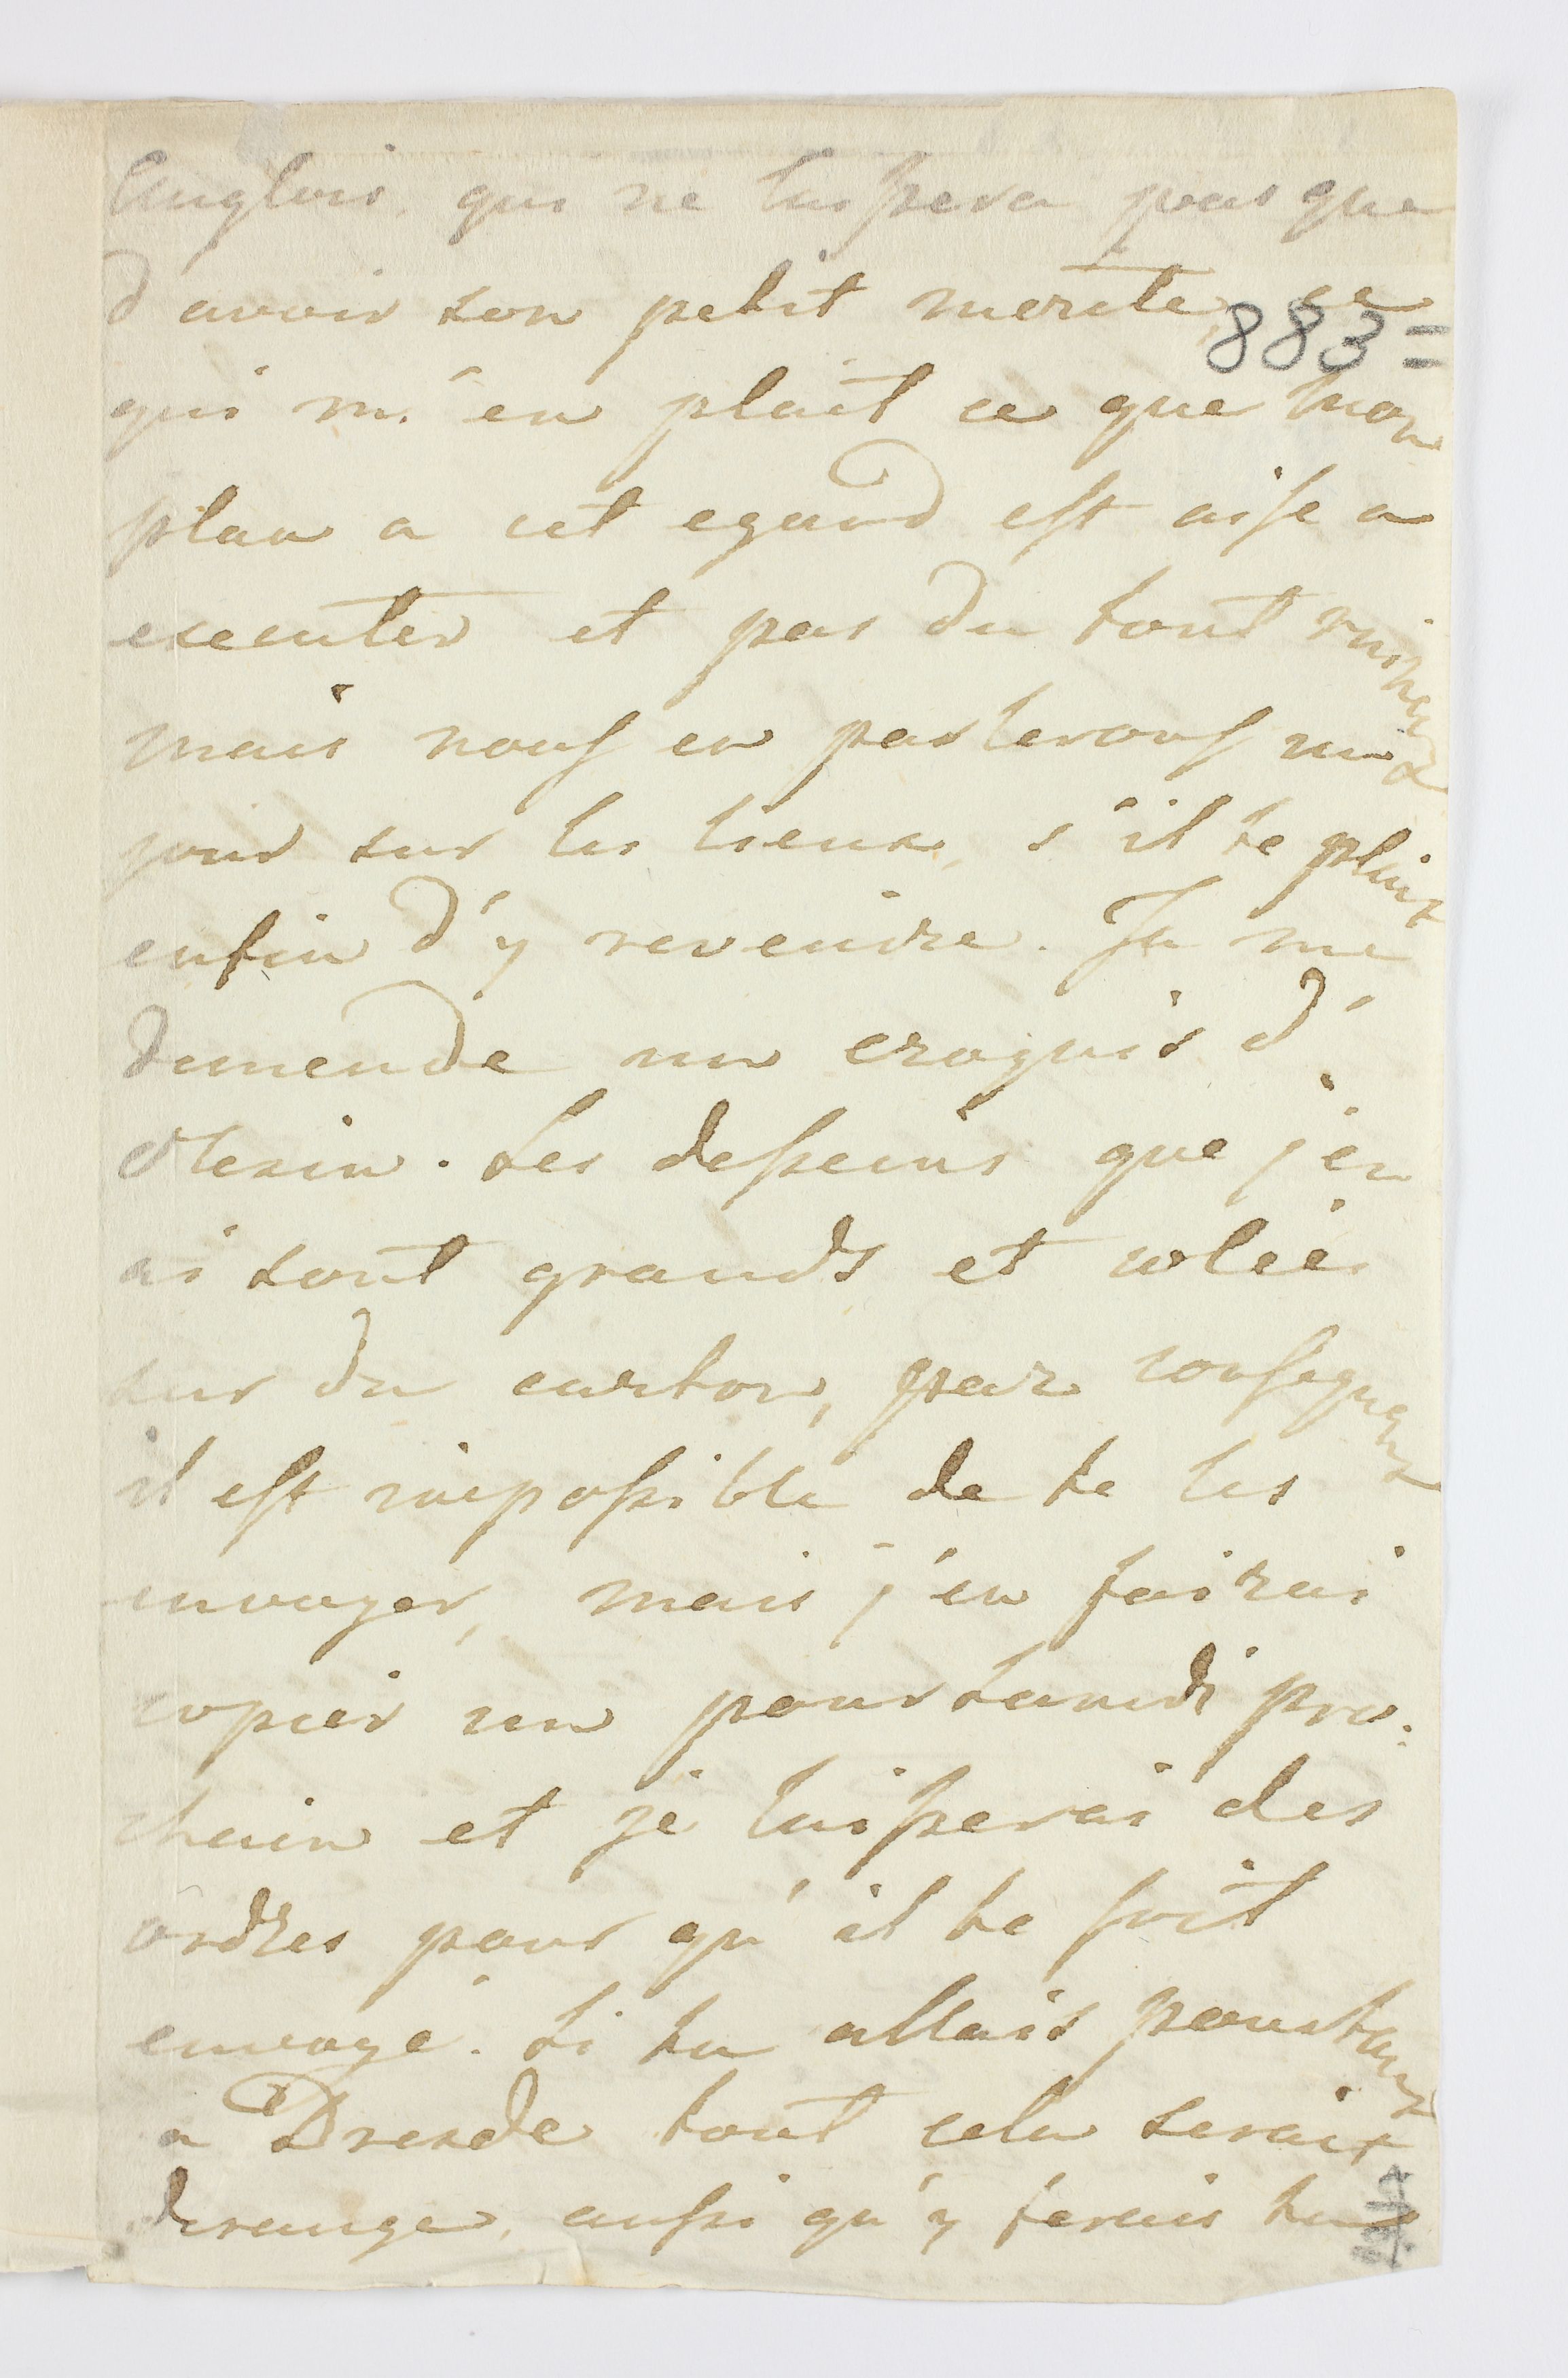 Anglois, qui ne laissera pas que
d'avoir son petit merite, ce
883=
qui m'en plait ce que mon
plan a cet egard est aise a
executer et pas du tout ruineux
mais nous en parlerons un
jour sur les lieux, s'il te plait
enfin d'y revenire. Tu me
demende un croquis d'
Otesin. Les desseins que j'en
ai sont grands et colées
sur du carton, par consequent
il est impossible de te les
envoyer, mais j'en fairai
copier un pour Lundi pro-
chain et je laisserai des
ordres pour qu'il te soit
envoyé. Si tu allais pourtant
a Dresde tout cela serait
derange, aussi qu'y ferais tu